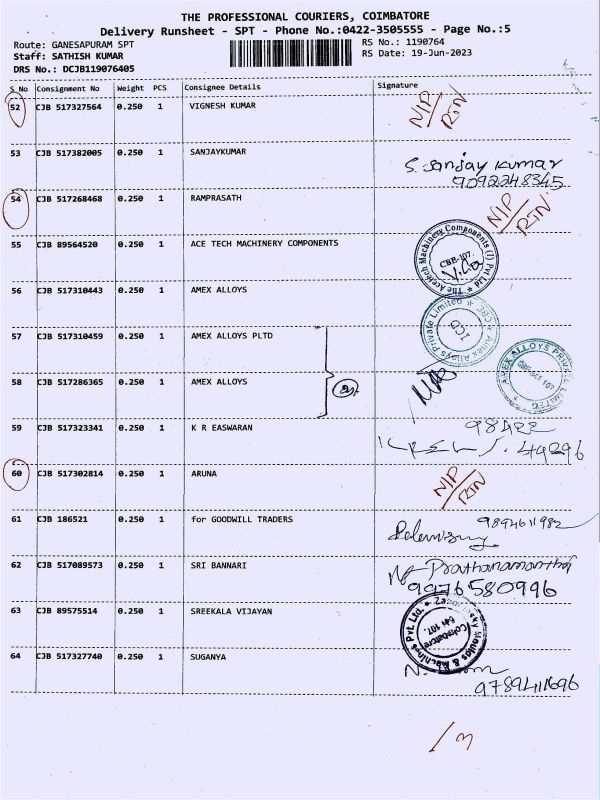 THE PROFESSIONAL COURIERS, COIMBATORE
Delivery Runsheet - SPT - Phone No.:0422-3505555 - Page No.:5
Route: GANESAPURAM SPT
RS No.: 1190764
Staff: SATHISH KUMAR
RS Date: 19-Jun-2023
DRS No.: DCJB119076405
S No Consignment No Weight PCS Consignee Details Signature
52 CJB 517327564 0.250 1 VIGNESH KUMAR N/P/RTN
53 CJB 517382005 0.250 1 SANJAYKUMAR S. Sanjay kumar
9092248345
54 CJB 517268468 0.250 1 RAMPRASATH N/P/RTN
55 CJB 89564520 0.250 1 ACE TECH MACHINERY COMPONENTS
The Acetech Machinery Components (I) Pvt Ltd
CBE-107.
56 CJB 517310443 0.250 1 AMEX ALLOYS
Amex Alloys Private Limited
57 CJB 517310459 0.250 1 AMEX ALLOYS PLTD
AMEX ALLOYS PRIVATE LIMITED
58 CJB 517286365 0.250 1 AMEX ALLOYS
59 CJB 517323341 0.250 1 K R EASWARAN 98422
44296
60 CJB 517302814 0.250 1 ARUNA N/P/RTN
61 CJB 186521 0.250 1 for GOODWILL TRADERS 9894611982
62 CJB 517089573 0.250 1 SRI BANNARI
9976580996
63 CJB 89575514 0.250 1 SREEKALA VIJAYAN
Moulds & Machines Pvt. Ltd.
Coimbatore
641 107.
64 CJB 517327740 0.250 1 SUGANYA
9789411696